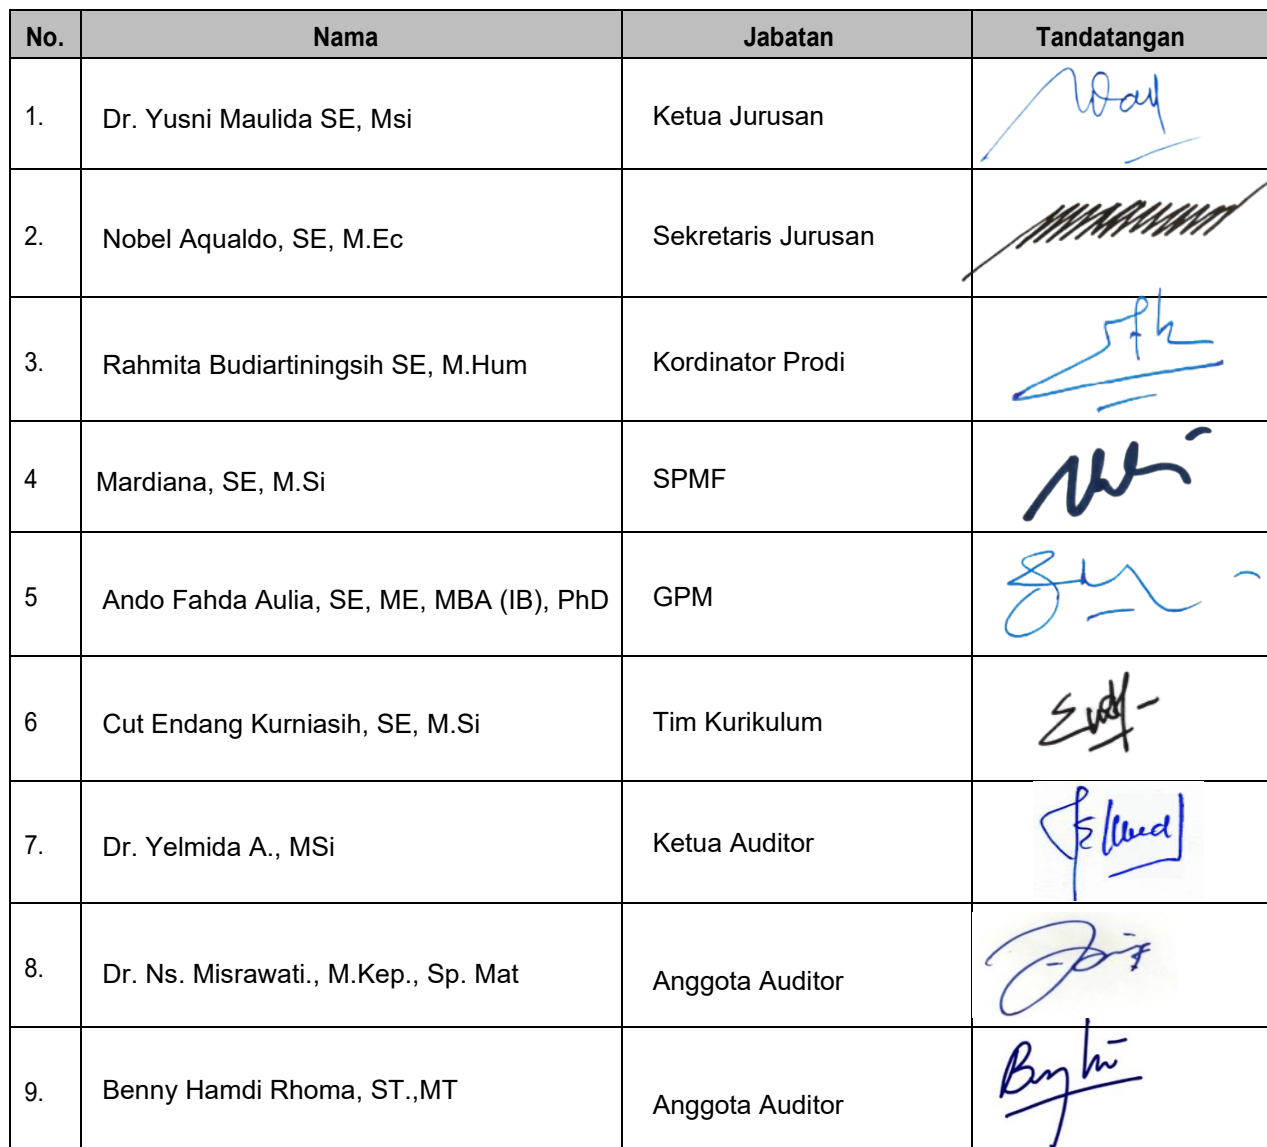 No. Nama Jabatan Tandatangan
1. Dr. Yusni Maulida SE, Msi Ketua Jurusan
2. Nobel Aqualdo, SE, M.Ec Sekretaris Jurusan
3. Rahmita Budiartiningsih SE, M.Hum Kordinator Prodi
4 Mardiana, SE, M.Si SPMF
5 Ando Fahda Aulia, SE, ME, MBA (IB), PhD GPM
6 Cut Endang Kurniasih, SE, M.Si Tim Kurikulum
7. Dr. Yelmida A., MSi Ketua Auditor
8. Dr. Ns. Misrawati., M.Kep., Sp. Mat Anggota Auditor
9. Benny Hamdi Rhoma, ST.,MT Anggota Auditor